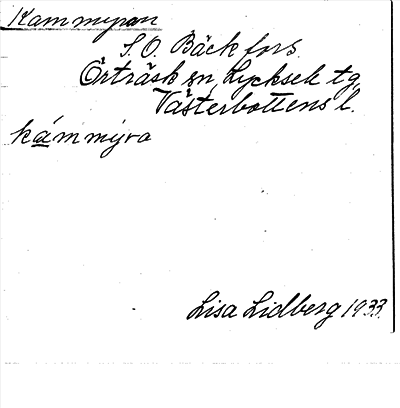 Kammyran
S.O. Bäckfors
Örträsk sn, Lycksele tg
Västerbottens l.
kámmýra
Lisa Lidberg 1933.